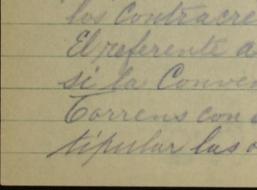 los contracre
El referente a
si la Conven
Torrens con
tipular las o